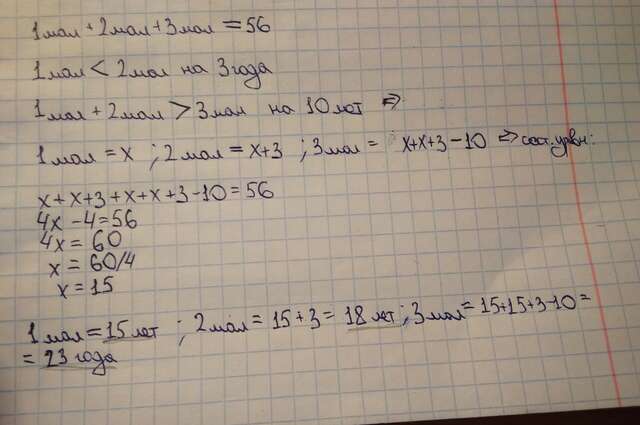 1мал + 2мал + 3мал = 56
1мал < 2мал на 3года
1мал + 2мал > 3мал на 10 лет ⇒
1мал = x ; 2мал = x+3 ; 3мал = x+x+3-10 ⇒ сост. урвн:
x+x+3+x+x+3-10=56
4x-4=56
4x=60
x=60/4
x=15
1мал = 15 лет ; 2мал = 15+3 = 18 лет ; 3мал = 15+15+3-10=
= 23 года